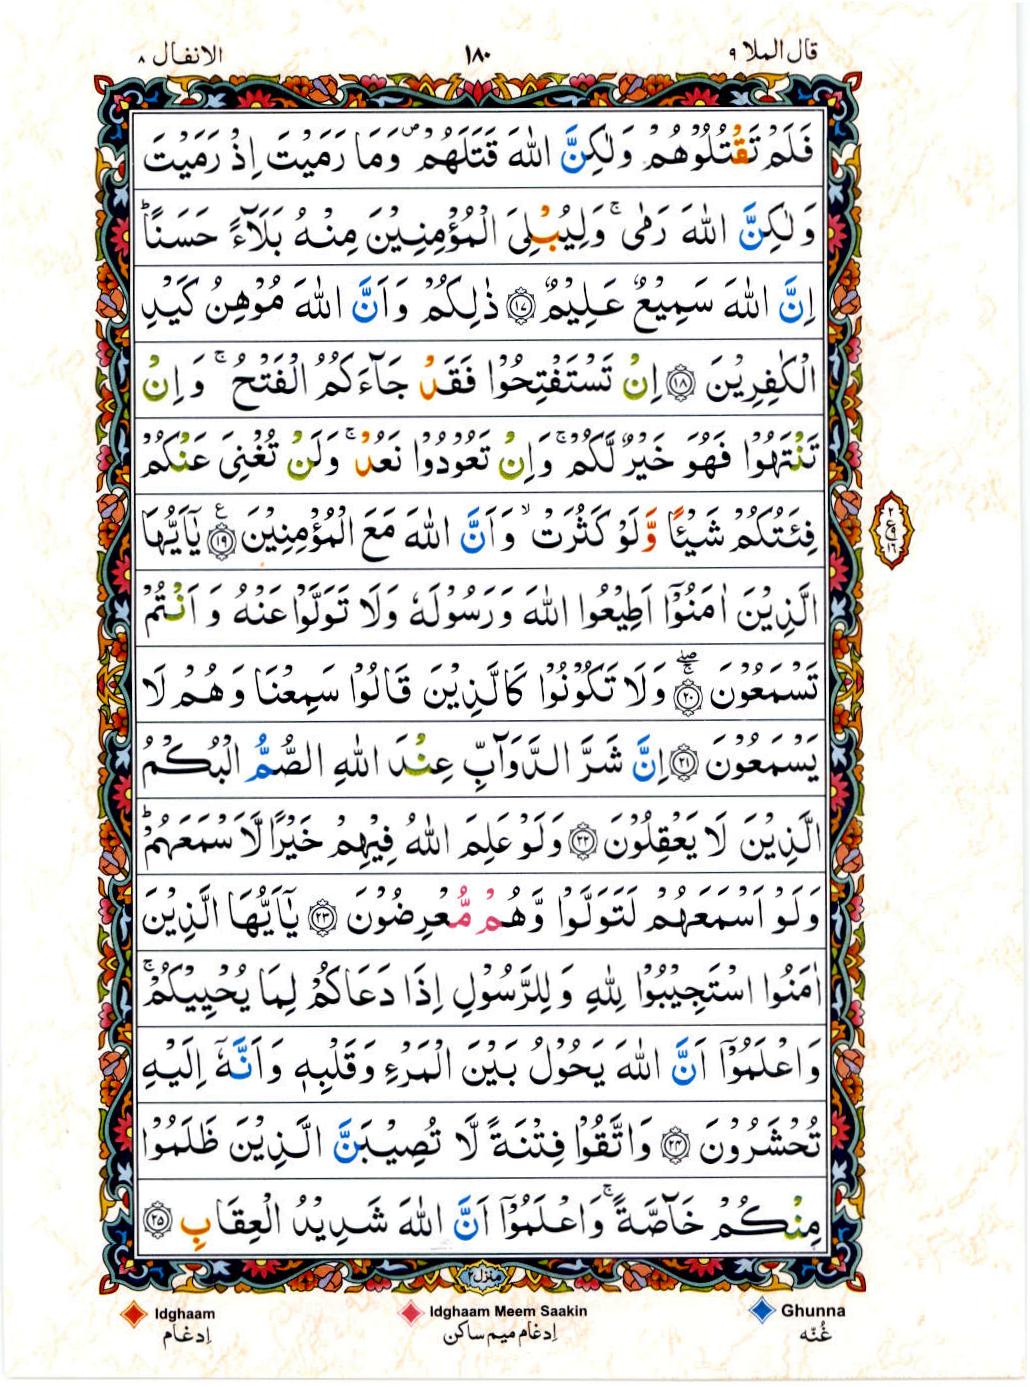 قال الملا ٩
١٨٠
الانفال ٨
فَلَمْ تَقْتُلُوْهُمْ وَلٰكِنَّ اللّٰهَ قَتَلَهُمْ ۪ وَمَا رَمَيْتَ اِذْ رَمَيْتَ
وَلٰكِنَّ اللّٰهَ رَمٰى ۚ وَلِيُبْلِىَ الْمُؤْمِنِيْنَ مِنْهُ بَلَآءً حَسَنًا ؕ
اِنَّ اللّٰهَ سَمِيْعٌ عَلِيْمٌ ﴿١٧﴾ ذٰلِكُمْ وَاَنَّ اللّٰهَ مُوْهِنُ كَيْدِ
الْكٰفِرِيْنَ ﴿١٨﴾ اِنْ تَسْتَفْتِحُوْا فَقَدْ جَآءَكُمُ الْفَتْحُ ۚ وَاِنْ
تَنْتَهُوْا فَهُوَ خَيْرٌ لَّكُمْ ۚ وَاِنْ تَعُوْدُوْا نَعُدْ ۚ وَلَنْ تُغْنِىَ عَنْكُمْ
فِئَتُكُمْ شَيْئًا وَّلَوْ كَثُرَتْ ۙ وَاَنَّ اللّٰهَ مَعَ الْمُؤْمِنِيْنَ ﴿١٩﴾ ع يٰۤاَيُّهَا
الَّذِيْنَ اٰمَنُوْۤا اَطِيْعُوا اللّٰهَ وَرَسُوْلَهٗ وَلَا تَوَلَّوْا عَنْهُ وَاَنْتُمْ
تَسْمَعُوْنَ ﴿٢٠﴾ ۖۚ وَلَا تَكُوْنُوْا كَالَّذِيْنَ قَالُوْا سَمِعْنَا وَهُمْ لَا
يَسْمَعُوْنَ ﴿٢١﴾ اِنَّ شَرَّ الدَّوَآبِّ عِنْدَ اللّٰهِ الصُّمُّ الْبُكْمُ
الَّذِيْنَ لَا يَعْقِلُوْنَ ﴿٢٢﴾ وَلَوْ عَلِمَ اللّٰهُ فِيْهِمْ خَيْرًا لَّاَسْمَعَهُمْ ؕ
وَلَوْ اَسْمَعَهُمْ لَتَوَلَّوْا وَّهُمْ مُّعْرِضُوْنَ ﴿٢٣﴾ يٰۤاَيُّهَا الَّذِيْنَ
اٰمَنُوا اسْتَجِيْبُوْا لِلّٰهِ وَلِلرَّسُوْلِ اِذَا دَعَاكُمْ لِمَا يُحْيِيْكُمْ ۚ
وَاعْلَمُوْۤا اَنَّ اللّٰهَ يَحُوْلُ بَيْنَ الْمَرْءِ وَقَلْبِهٖ وَاَنَّهٗۤ اِلَيْهِ
تُحْشَرُوْنَ ﴿٢٤﴾ وَاتَّقُوْا فِتْنَةً لَّا تُصِيْبَنَّ الَّذِيْنَ ظَلَمُوْا
مِنْكُمْ خَآصَّةً ۚ وَاعْلَمُوْۤا اَنَّ اللّٰهَ شَدِيْدُ الْعِقَابِ ﴿٢٥﴾
٢
ع
١٦
منزل ٢
Ghunna
غُنّه
Idghaam Meem Saakin
اِدغام ميم ساكن
Idghaam
اِدغام